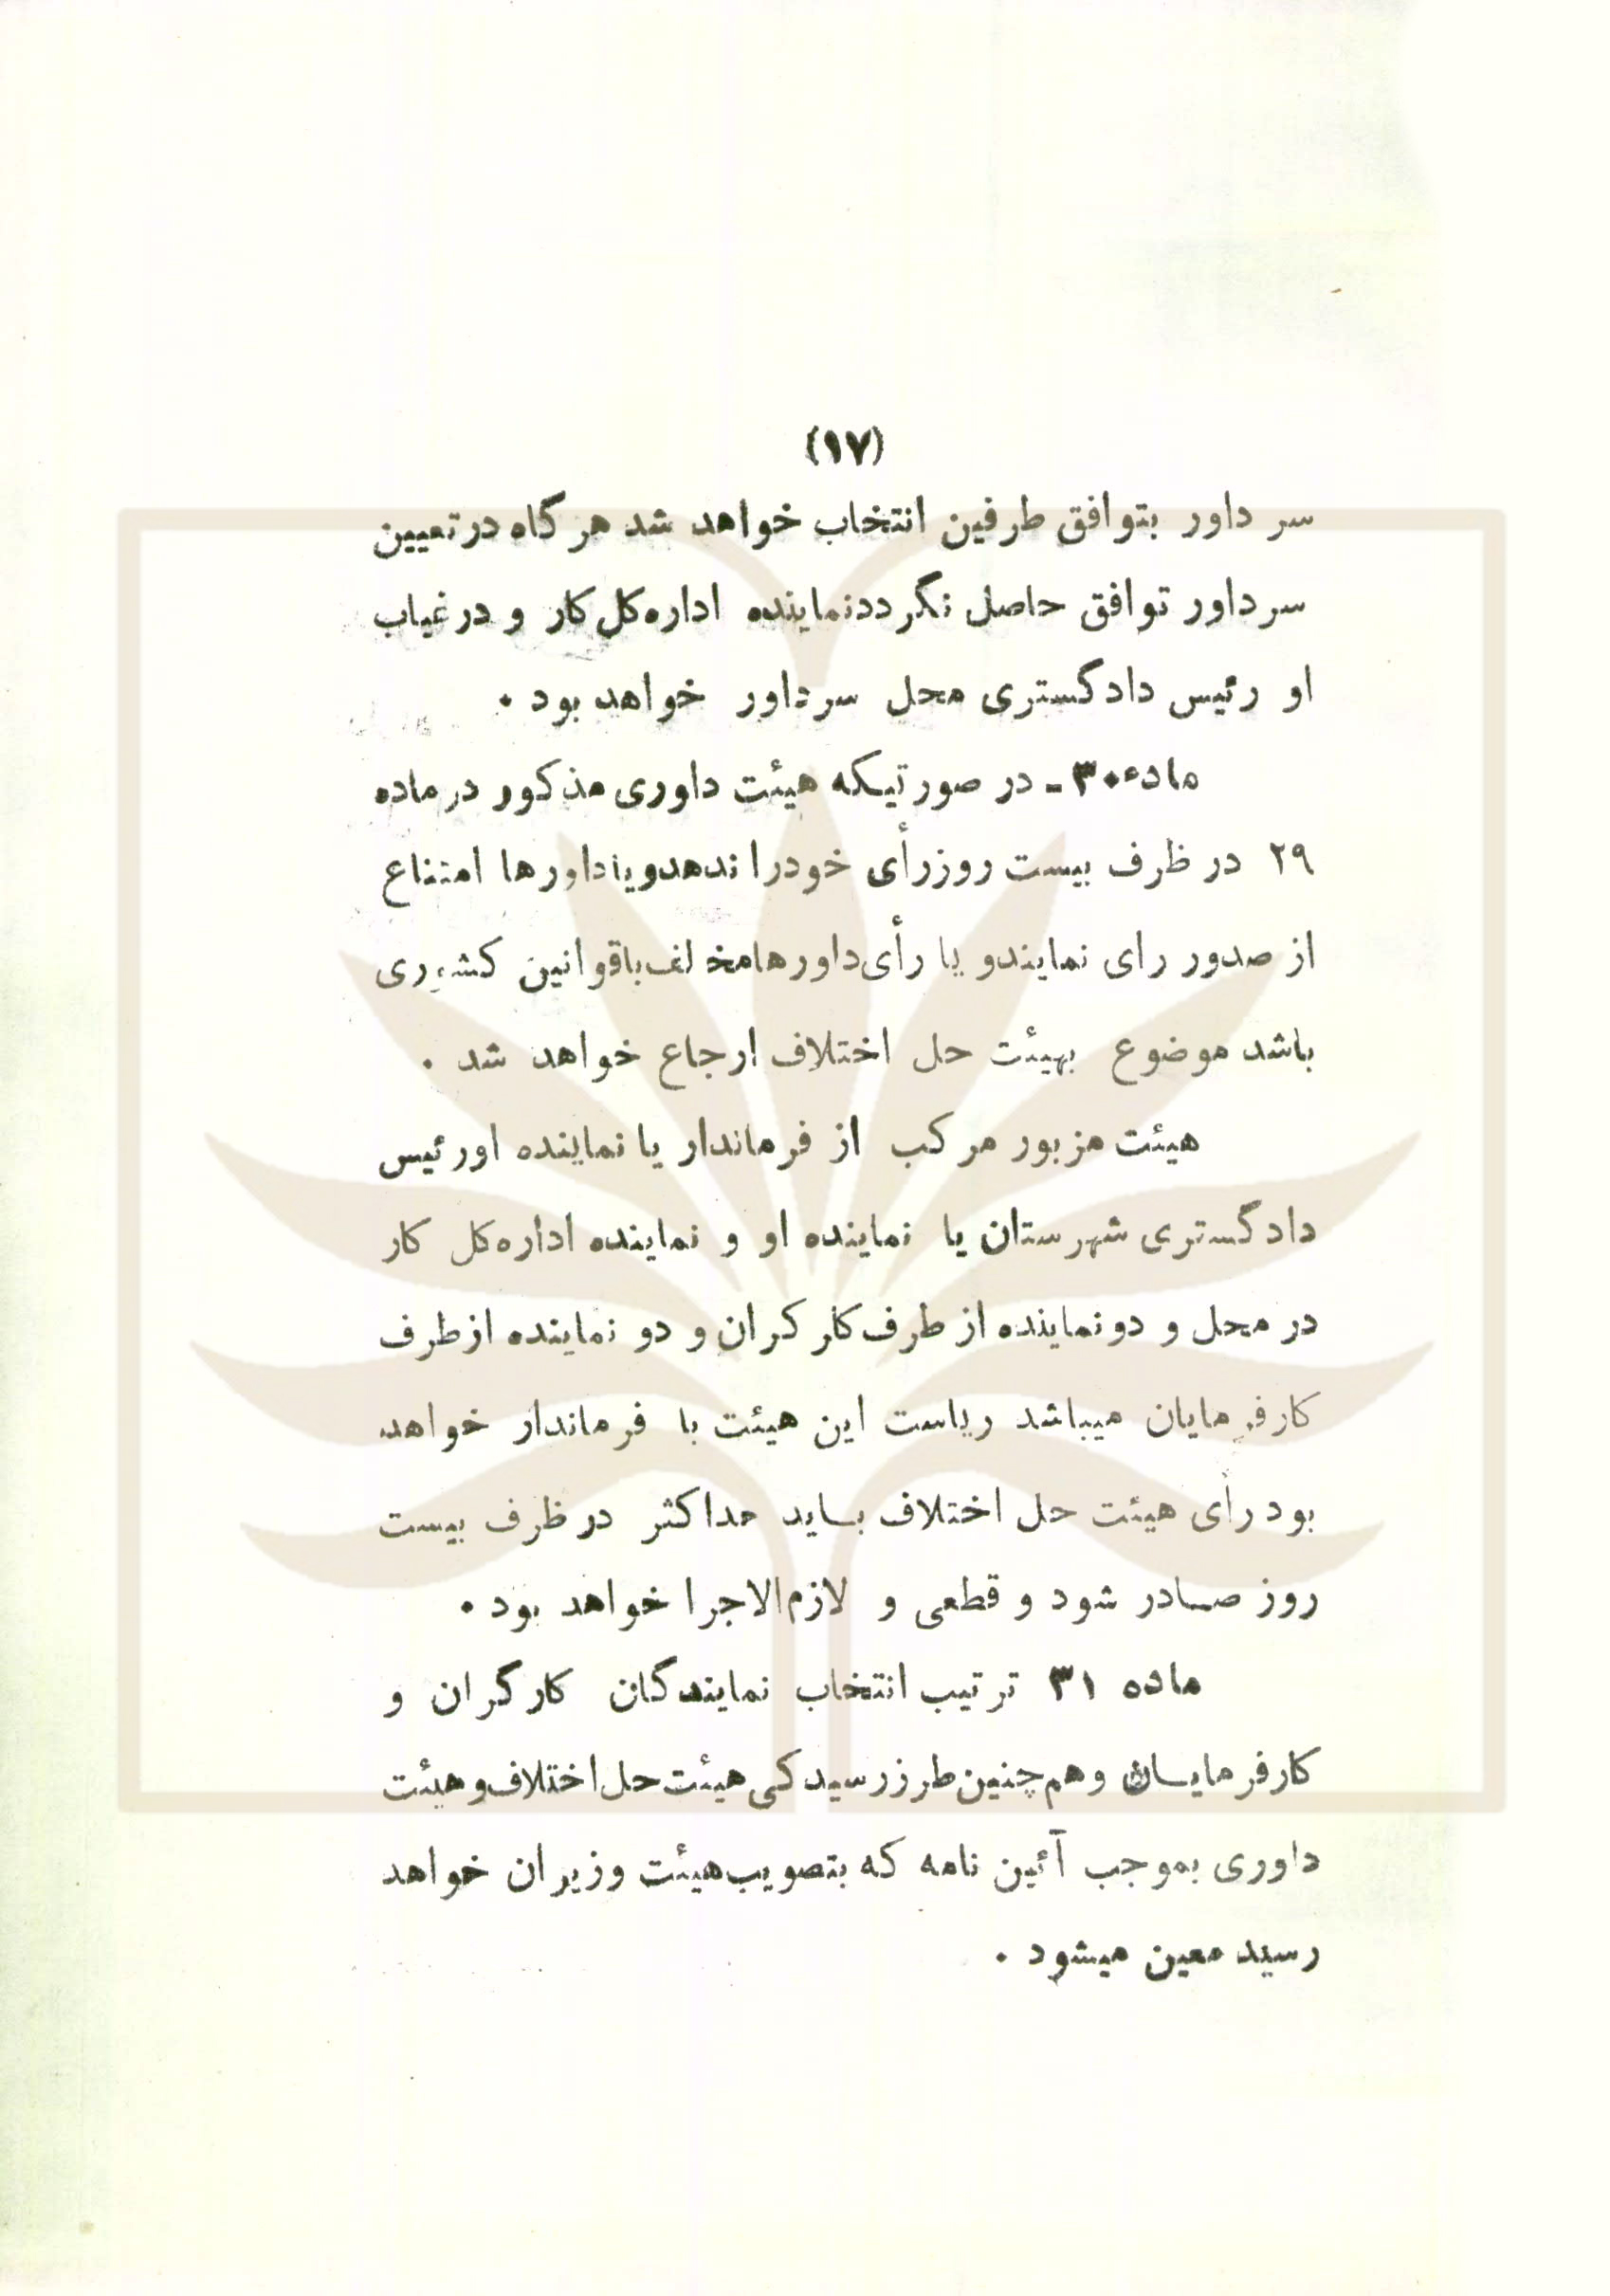 (۱۷)
سر داور بتوافق طرفین انتخاب خواهد شد هرگاه در تعیین
سرداور توافق حاصل نگردد نماینده اداره کل کار و در غیاب
او رئیس دادگستری محل سرداور خواهد بود .
ماده ۳۰ - در صورتیکه هیئت داوری مذکور در ماده
۲۹ در ظرف بیست روز رأی خودرا ندهد و یا داورها امتناع
از صدور رای نمایند و یا رأی داورها مخالف با قوانین کشوری
باشد موضوع بهیئت حل اختلاف ارجاع خواهد شد .
هیئت مزبور مرکب از فرماندار یا نماینده او رئیس
دادگستری شهرستان یا نماینده او و نماینده اداره کل کار
در محل و دو نماینده از طرف کارکران و دو نماینده از طرف
کارفرمایان میباشد ریاست این هیئت با فرماندار خواهد
بود رأی هیئت حل اختلاف بساید حداکثر در ظرف بیست
روز صادر شود و قطعی و لازم‌الاجرا خواهد بود .
ماده ۳۱ ترتیب انتخاب نمایندگان کارگران و
کارفرمایان و هم‌چنین طرز رسیدکی هیئت حل اختلاف و هیئت
داوری بموجب آئین نامه که بتصویب هیئت وزیران خواهد
رسید معین میشود .